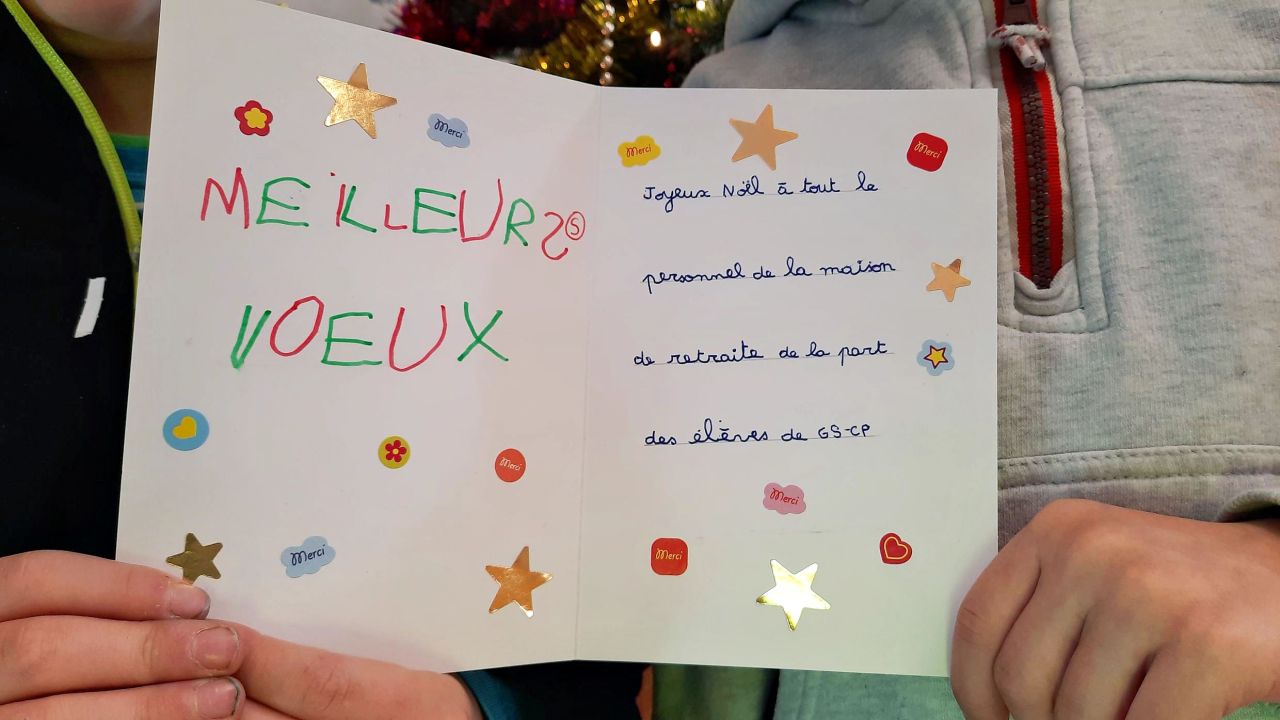 Merci
MEILLEURS Ⓢ
VOEUX
Merci
Merci
Merci
Merci
Joyeux Noël à tout le
personnel de la maison
de retraite de la part
des élèves de GS-CP
Merci
Merci